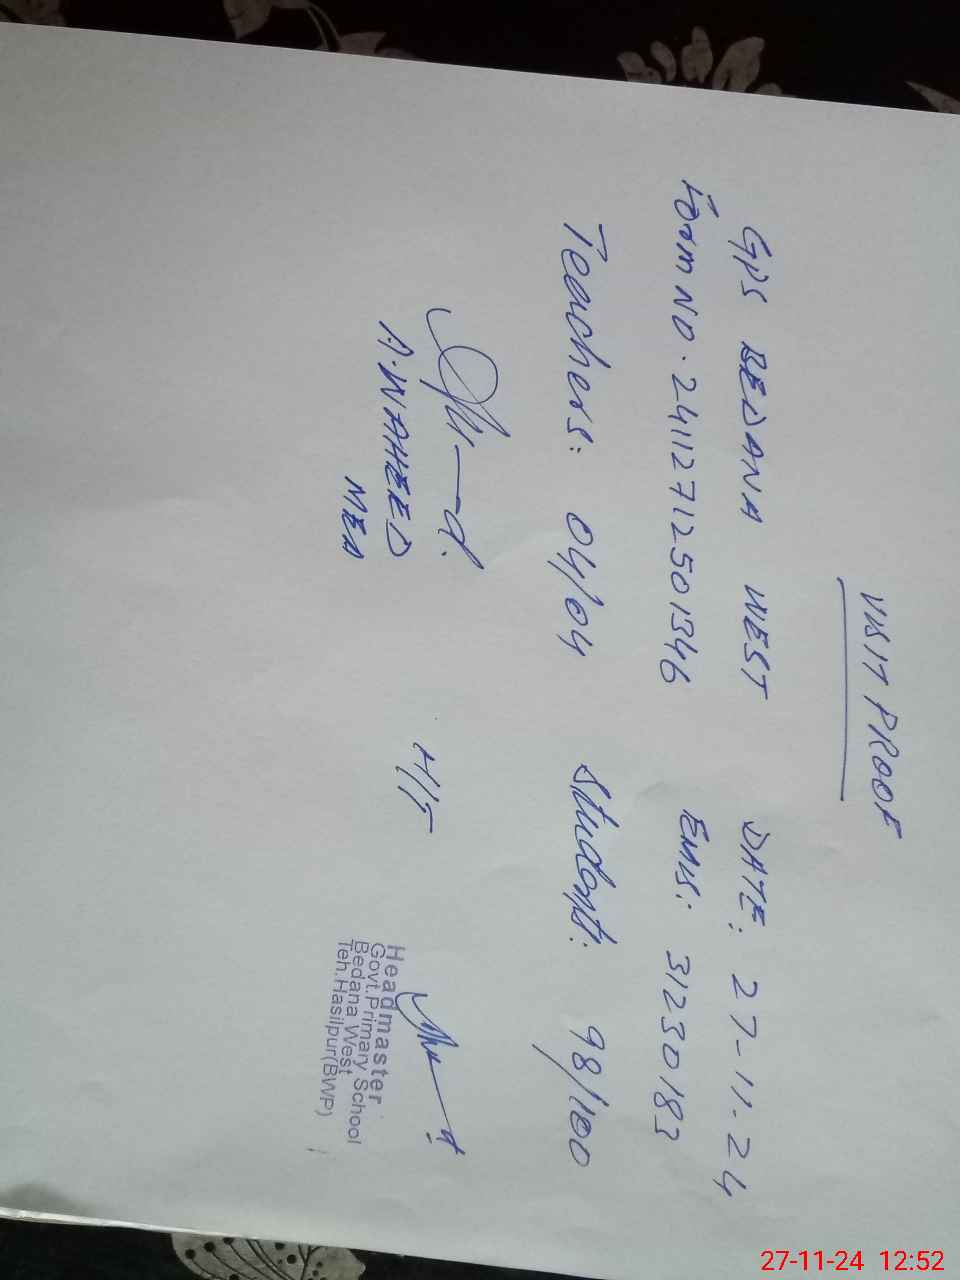 VISIT PROOF
GPS BEDANA WEST DATE: 27-11-24
Form NO. 24112712501346 EMIS: 31230183
Teachers: 04/04 Student: 98/100
A.WAHEED
MEA
H/T
Headmaster
Govt.Primary School
Bedana West
Teh.Hasilpur(BWP)
27-11-24 12:52